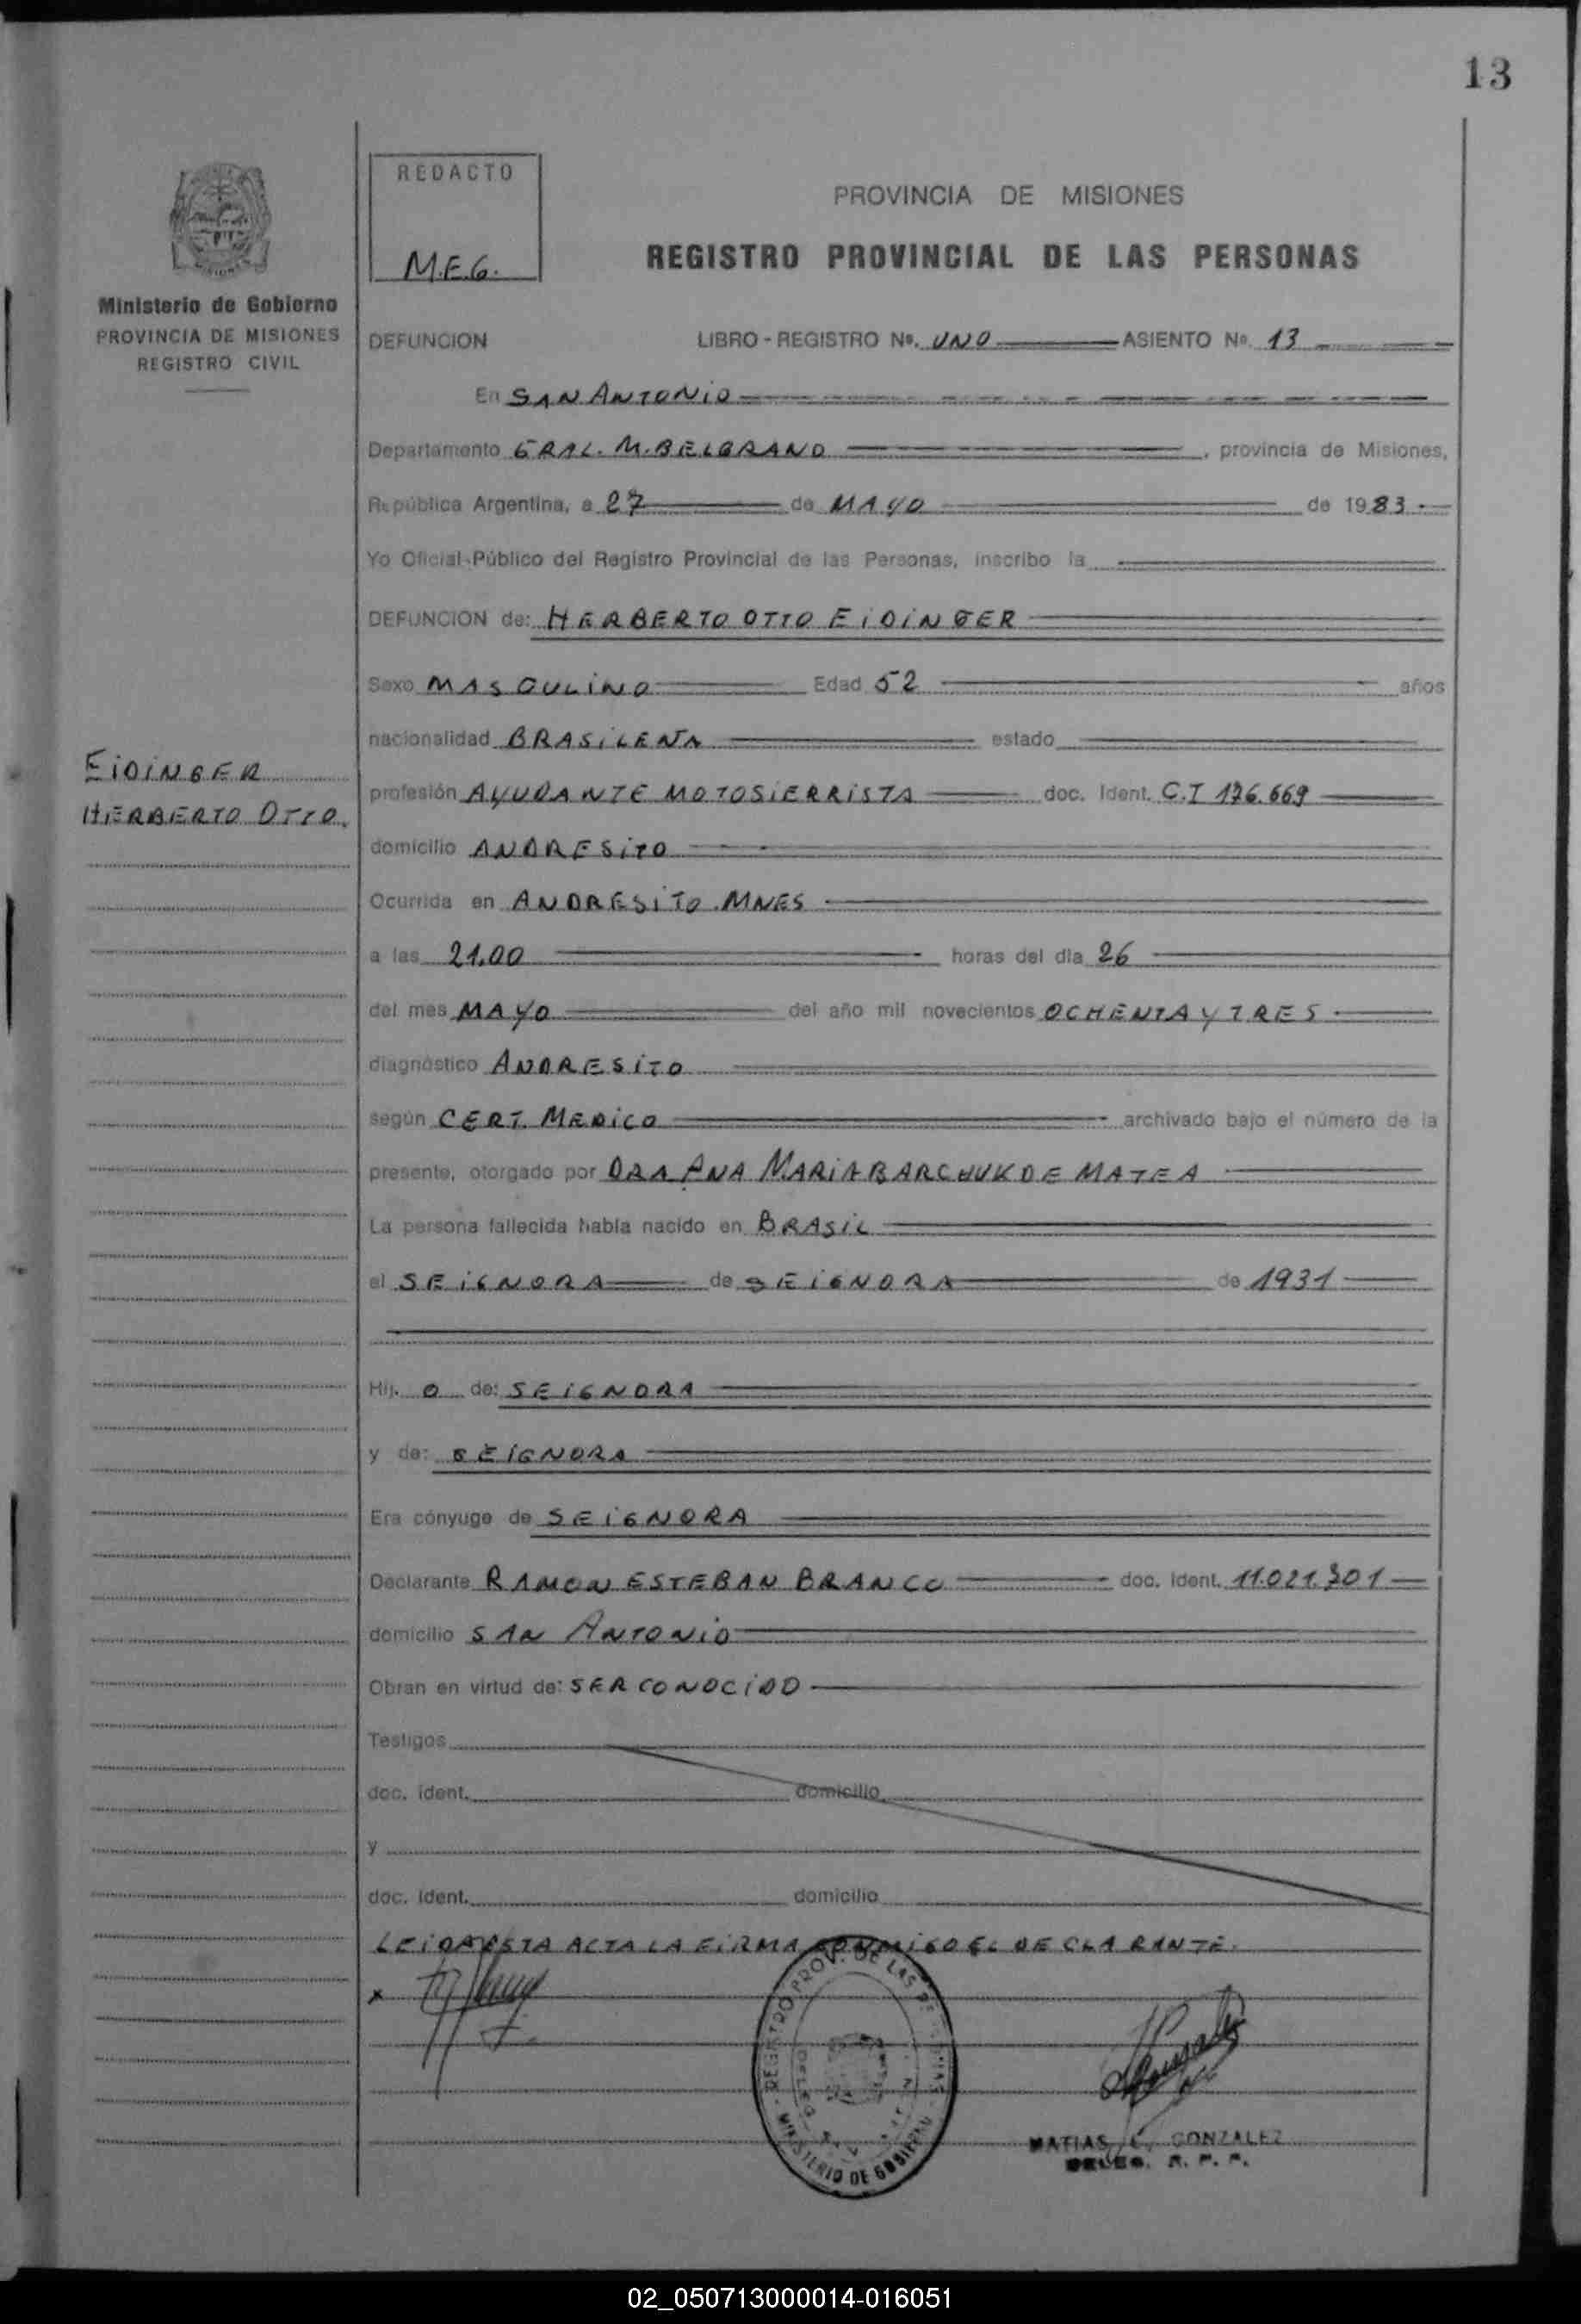 13
REDACTO
M.E.G.
PROVINCIA DE MISIONES
REGISTRO PROVINCIAL DE LAS PERSONAS
Ministerio de Gobierno
PROVINCIA DE MISIONES
REGISTRO CIVIL
DEFUNCION LIBRO - REGISTRO Nº. UNO ASIENTO Nº 13
En SAN ANTONIO
Departamento GRAL. M. BELGRANO, provincia de Misiones,
República Argentina, a 27 de MAYO de 1983
Yo Oficial Público del Registro Provincial de las Personas, inscribo la
DEFUNCION de: HERBERTO OTTO EIDINGER
Sexo MASCULINO Edad 52 años
nacionalidad BRASILEÑA estado
EIDINGER
HERBERTO OTTO.
profesión AYUDANTE MOTOSIERRISTA doc. Ident. C.I 176.669
domicilio ANDRESITO
Ocurrida en ANDRESITO. MNES
a las 21,00 horas del día 26
del mes MAYO del año mil novecientos OCHENTA Y TRES
diagnóstico ANDRESITO
según CERT. MEDICO archivado bajo el número de la
presente, otorgado por DRA ANA MARIA BARCHUK DE MATEA
La persona fallecida había nacido en BRASIL
el SE IGNORA de SE IGNORA de 1931
Hij. O de: SE IGNORA
y de: SE IGNORA
Era cónyuge de SE IGNORA
Declarante RAMON ESTEBAN BRANCO doc. Ident. 11.021.301
domicilio SAN ANTONIO
Obran en virtud de: SER CONOCIDO
Testigos
doc. ident. domicilio
y
doc. ident. domicilio
LEIDA ESTA ACTA LA FIRMA CONMIGO EL DECLARANTE.
x
REGISTRO PROV. DE LAS PERSONAS
MINISTERIO DE GOBIERNO
MATIAS E. GONZALEZ
DELEG. R. P. P.
02_050713000014-016051